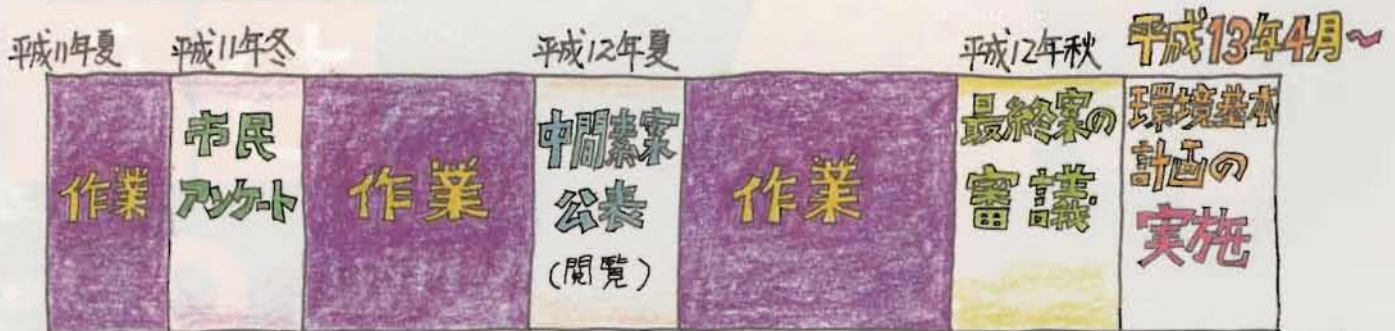 平成11年夏
平成11年冬
平成12年夏
平成12年秋
平成13年4月〜
作業
市民
アンケート
作業
中間素案
公表
(閲覧)
作業
最終案の
審議
環境基本
計画の
実施